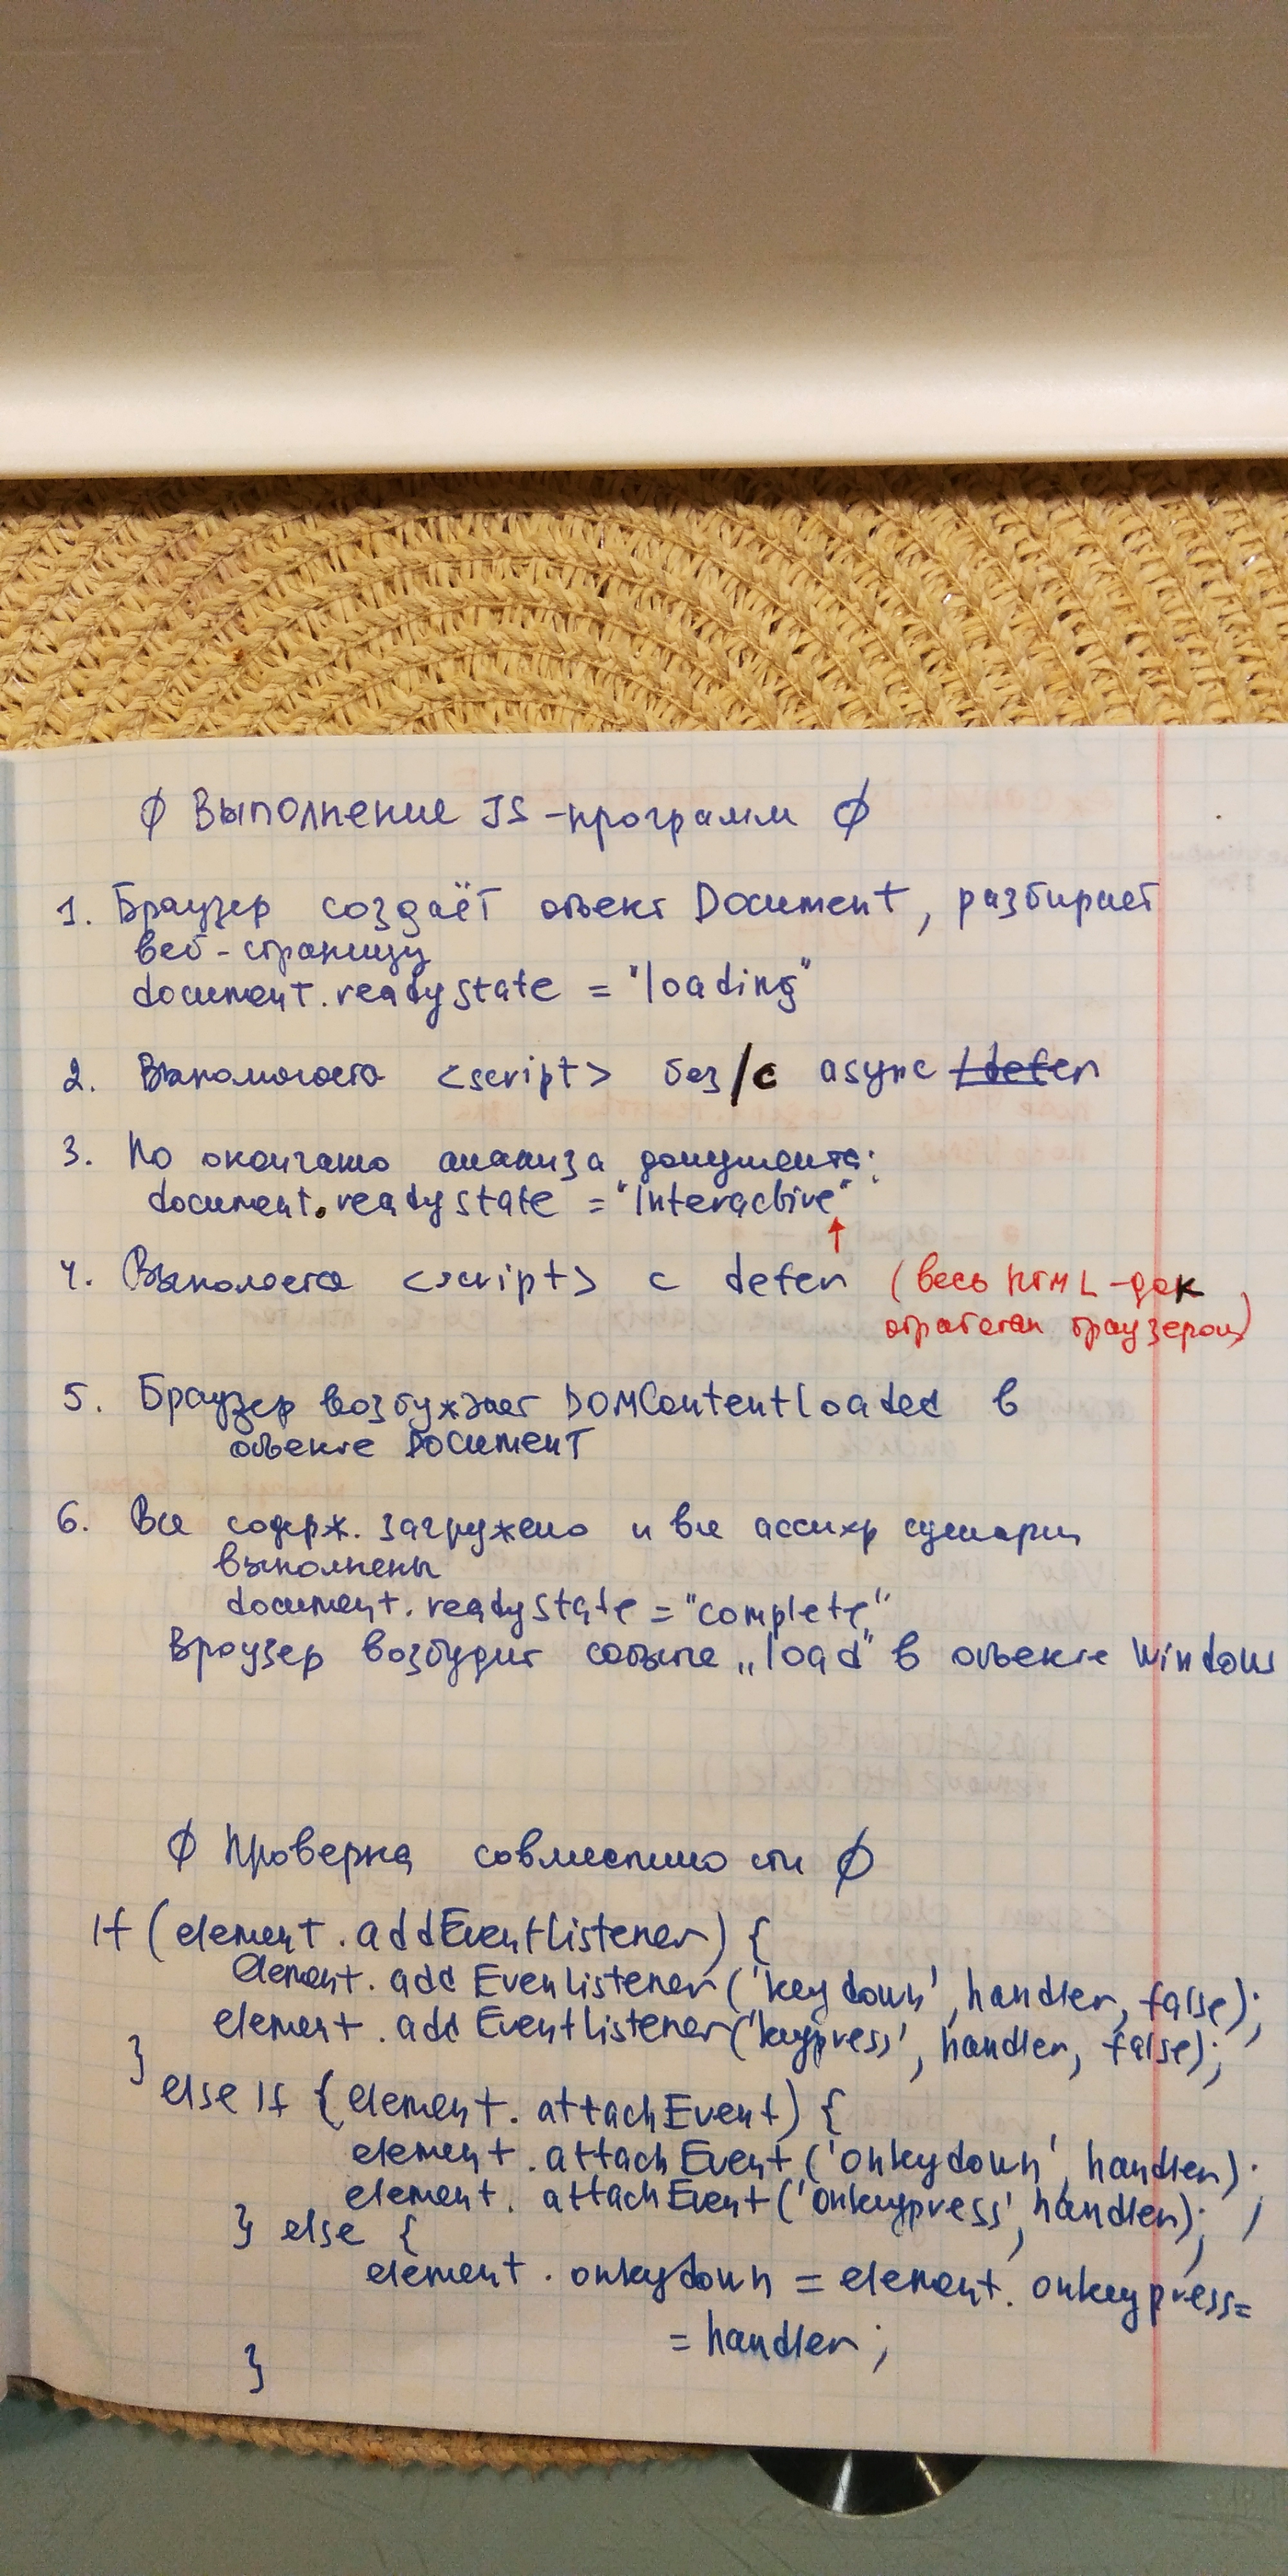 ∅ Выполнение JS-программ ∅
1. Браузер создаёт объект Document, разбирает
веб-страницу
document.readyState = "loading"
2. Выполняются <script> без/с async /defer
3. По окончанию анализа документа:
document.readyState = "Interactive"
4. Выполняются <script> с defer (весь HTML-док
обработан браузером)
5. Браузер возбуждает DOMContentloaded в
объекте DOCUMENT
6. Все содерж. загружено и все ассихр сценарии
выполнены
document.readyState = "complete"
Браузер возбудит событие „load" в объекте Window
∅ Проверка совместимости ∅
If (element.addEventListener) {
element.addEvenListener('keydown', handler, false);
element.addEventListener('keypress', handler, false);
}
else If {element.attachEvent) {
element.attachEvent('onkeydown', handler);
element.attachEvent('onkeypress', handler);
} else {
element.onkeydown = element.onkeypress=
= handler;
}